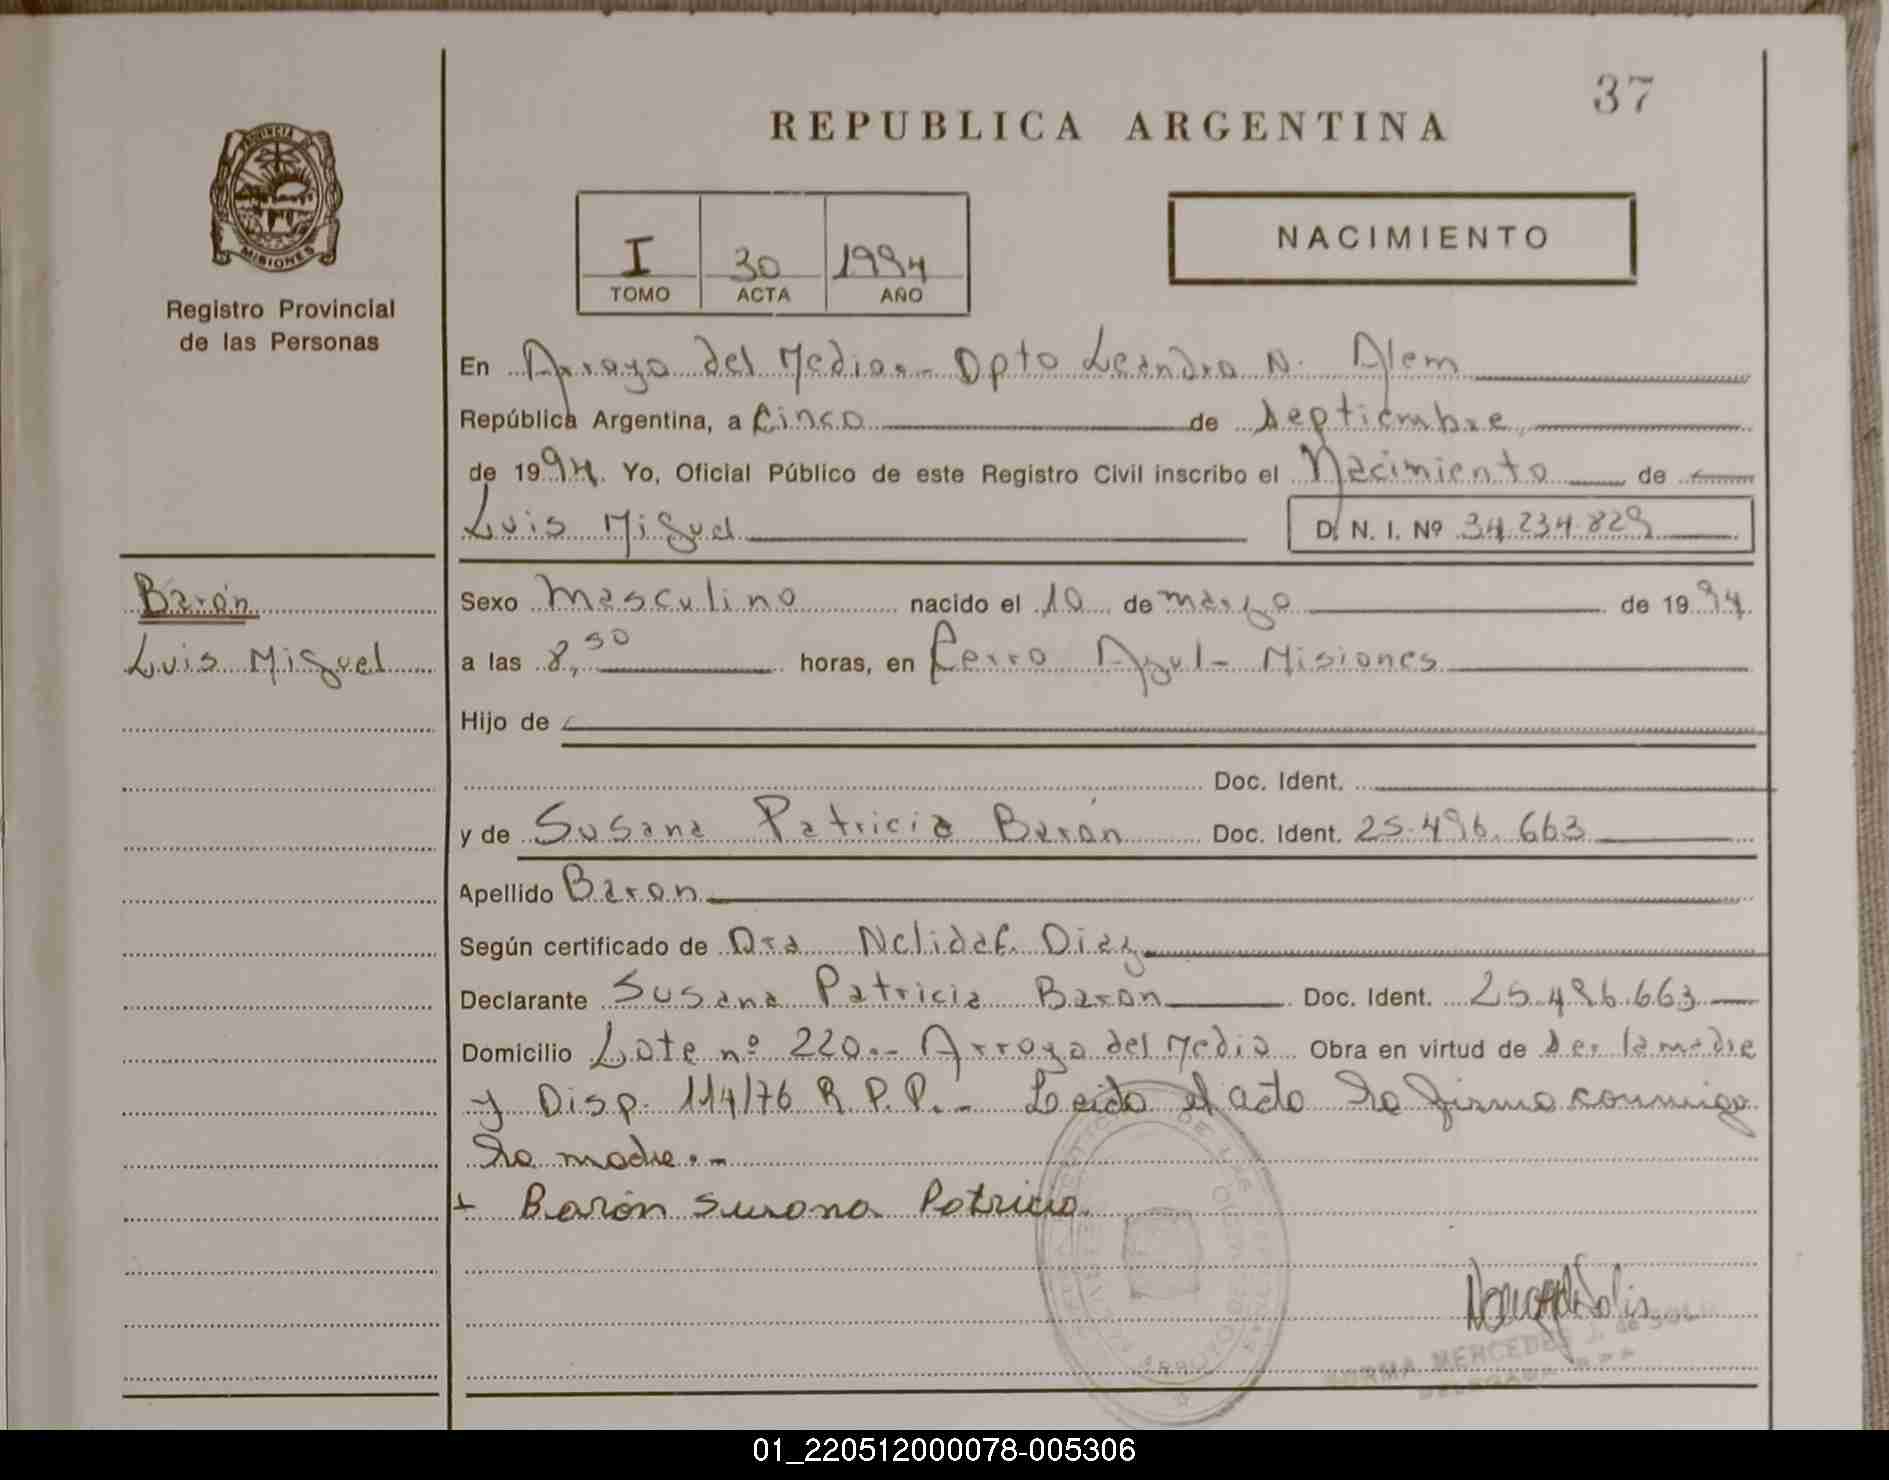 37
REPUBLICA ARGENTINA
PROVINCIA
MISIONES
Registro Provincial
de las Personas
I 30 1994
TOMO ACTA AÑO
NACIMIENTO
En Arroyo del Medio.- Dpto Leandro N. Alem
República Argentina, a Cinco de Septiembre
de 1994. Yo, Oficial Público de este Registro Civil inscribo el Nacimiento de
Luis Miguel D. N. I. Nº 34.234.829
Barón
Luis Miguel
Sexo Masculino nacido el 10 de marzo de 1994
a las 8,50 horas, en Cerro Azul - Misiones
Hijo de
Doc. Ident.
y de Susana Patricia Barón Doc. Ident. 25.496.663
Apellido Baron
Según certificado de Dra Nelida Diaz
Declarante Susana Patricia Baron Doc. Ident. 25.496.663
Domicilio Lote nº 220.- Arroyo del Medio Obra en virtud de ser la madre
y Disp. 114/76 R.P.P.- Leido el acta la firma conmigo
la madre.-
Barón Susana Patricia
NORMA MERCEDES J. de SOLIS
DELEGADA R P P
01_220512000078-005306